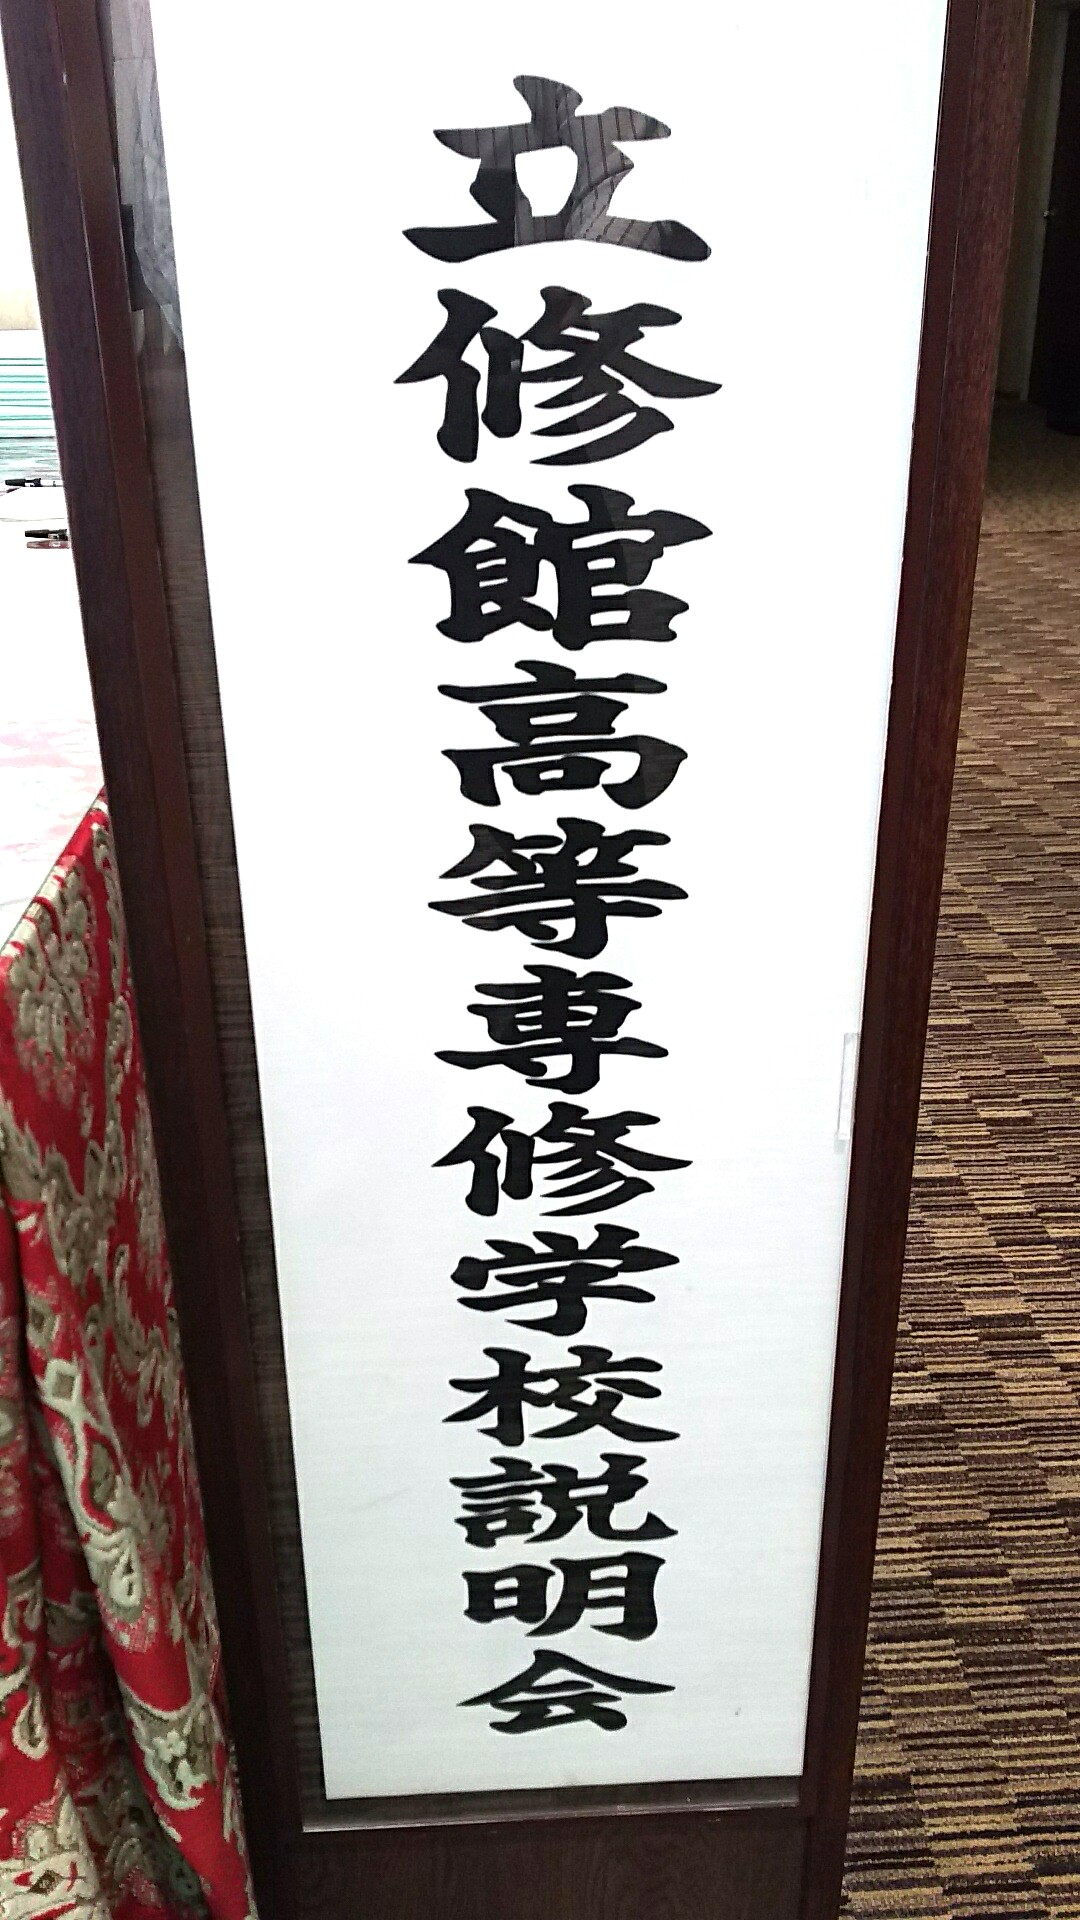 立修館高等専修学校説明会